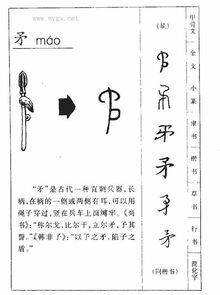 www.mygx.net
矛 máo
“矛”是古代一种直刺兵器，长
柄，在柄的一侧或两侧有耳，可以用
绳子穿过，竖在兵车上面缚牢。《尚
书》：“称尔戈，比尔干，立尔矛，予其
誓。”《韩非子》：“以子之矛，陷子之
盾。”
(缺)
矛
矛
矛
矛
(同楷书)
甲骨文
金文
小篆
隶书
楷书
草书
行书
简化字